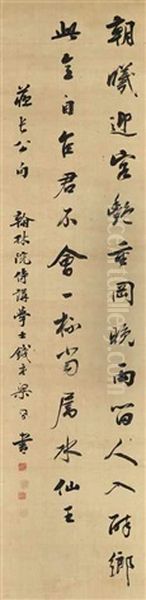 朝曦迎客艷重岡晚雨留人入醉鄉
此意自佳君不會一杯當屬水仙王
蘇長公句 翰林院侍講學士錢梁同書